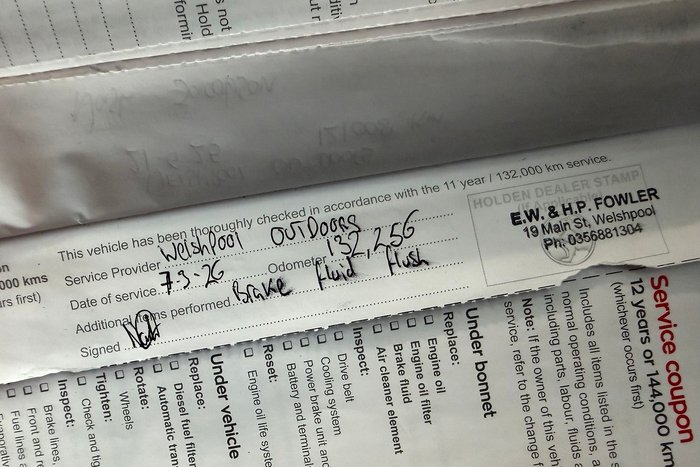 s not
Hold
This vehicle has been thoroughly checked in accordance with the 11 year / 132,000 km service.
Service Provider Welshpool OUTDOORS
Date of service 7.3.26 Odometer 132,256
Additional items performed Brake fluid flush
Signed
HOLDEN DEALER STAMP
E.W. & H.P. FOWLER
19 Main St, Welshpool
Ph: 0356881304
000 kms
rs first)
Service coupon
12 years or 144,000 km
(whichever occurs first)
Includes all items listed in the
normal operating conditions,
including parts, labour, fluids
Note: If the owner of this veh
service, refer to the change
Under bonnet
Replace:
Engine oil
Engine oil filter
Brake fluid
Air cleaner element
Inspect:
Drive belt
Cooling system
Power brake unit and
Battery and terminal
Reset:
Engine oil life syste
Under vehicle
Replace:
Diesel fuel filter
Automatic tran
Rotate:
Wheels
Tighten:
Check and tig
Inspect:
Brake lines,
Front and r
Fuel lines
Evaporativ